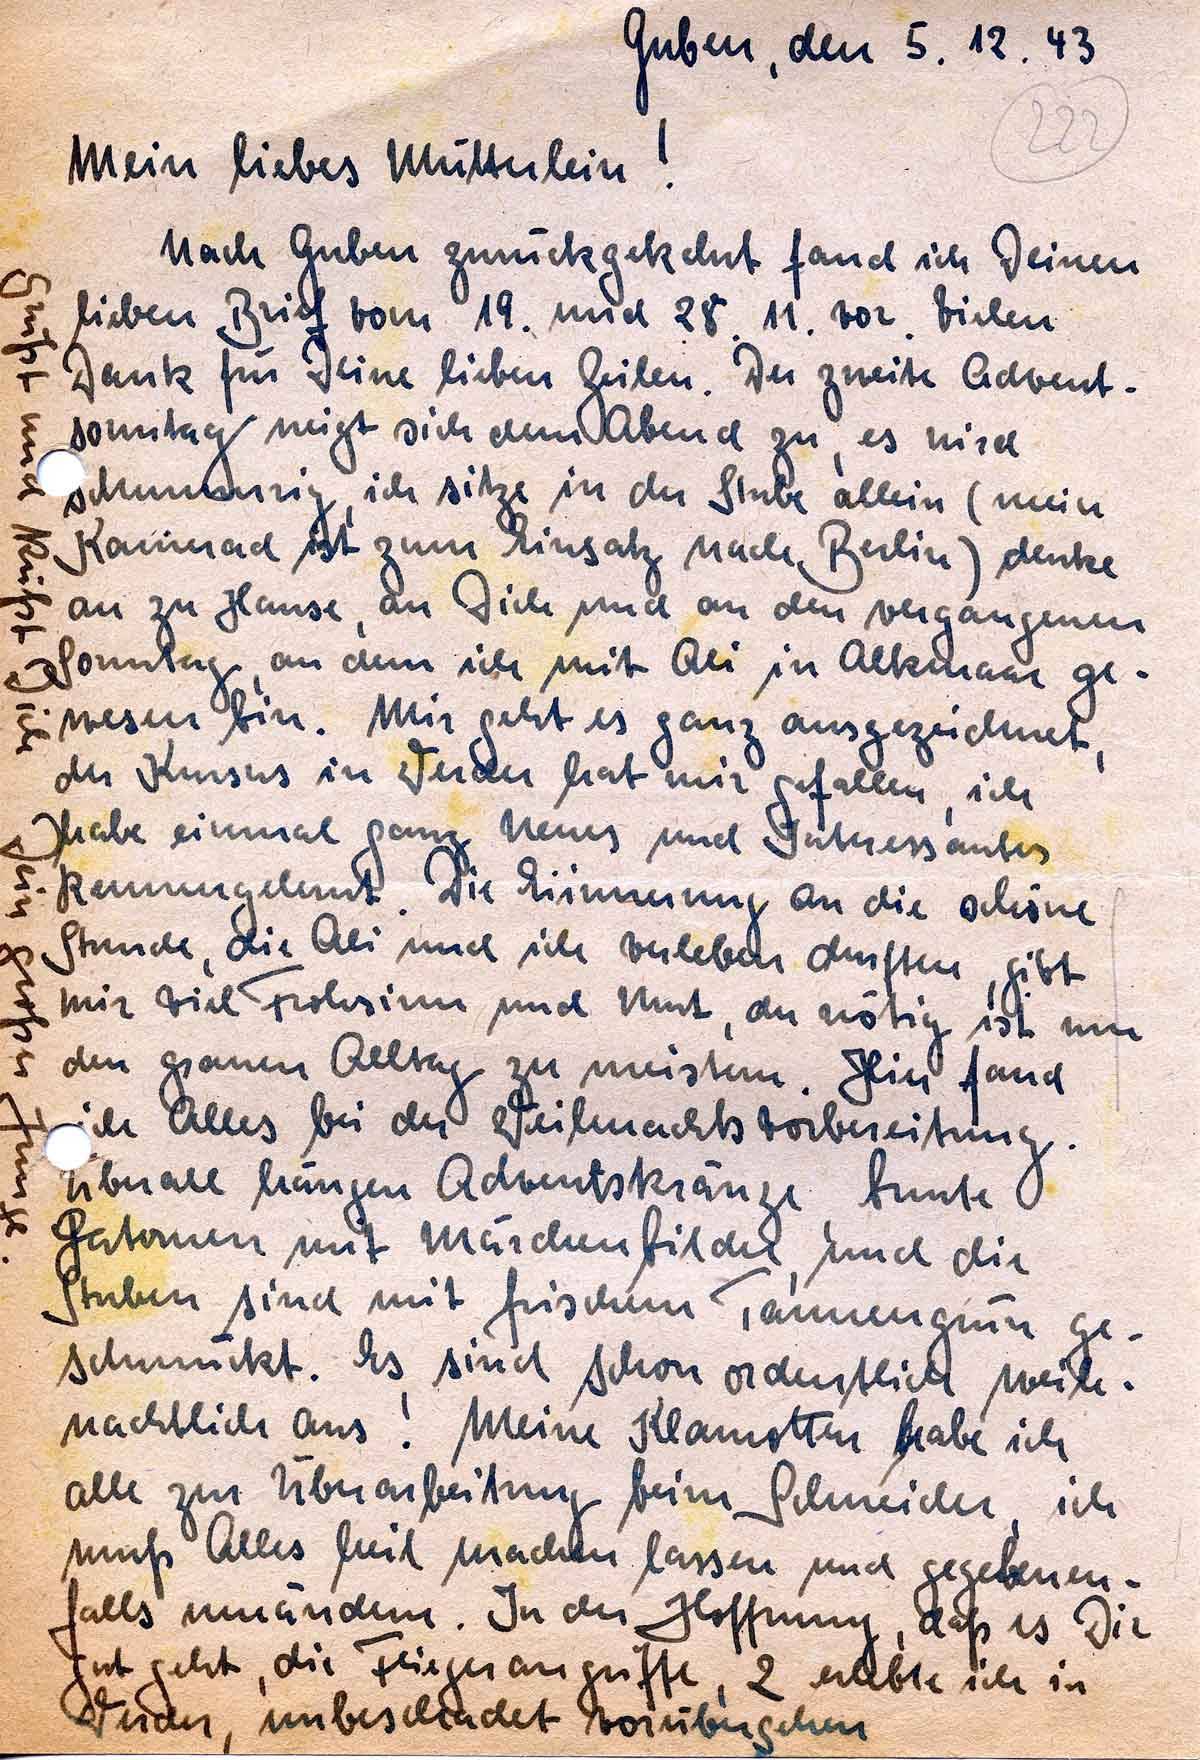 Guben, den 5. 12. 43
222
Mein liebes Mütterlein!
Nach Guben zurückgekehrt fand ich Deinen
lieben Brief vom 19. und 28. 11. vor. Vielen
Dank für Deine lieben Zeilen. Der zweite Advent-
sonntag neigt sich dem Abend zu, es wird
schummrig, ich sitze in der Stube allein (mein
Kamerad ist zum Einsatz nach Berlin) denke
an zu Hause, an Dich und an den vergangenen
Sonntag, an dem ich mit Ali in Alkmaar ge-
wesen bin. Mir geht es ganz ausgezeichnet,
der Kursus in Werder hat mir gefallen, ich
habe einmal ganz Neues und Interessantes
kennengelernt. Die Erinnerung an die schöne
Stunde, die Ali und ich verleben durften, gibt
mir viel Frohsinn und Mut, der nötig ist um
den grauen Alltag zu meistern. Hier fand
ich Alles bei der Weihnachtsvorbereitung.
Überall hängen Adventskränze, bunte
Latornen mit Märchenbilder, und die
Stuben sind mit frischem Tannengrün ge-
schmückt. Es sind schon ordentlich weih-
nachtlich aus! Meine Klamotten habe ich
alle zur Überarbeitung beim Schneider, ich
muß Alles heil machen lassen und gegebenen-
falls umändern. In der Hoffnung, daß es Dir
gut geht, die Fliegerangriffe, 2 erlebte ich in
Werder, unbeschadet vorübergehen
Grüßt und küßt Dich Dein großer Junge.